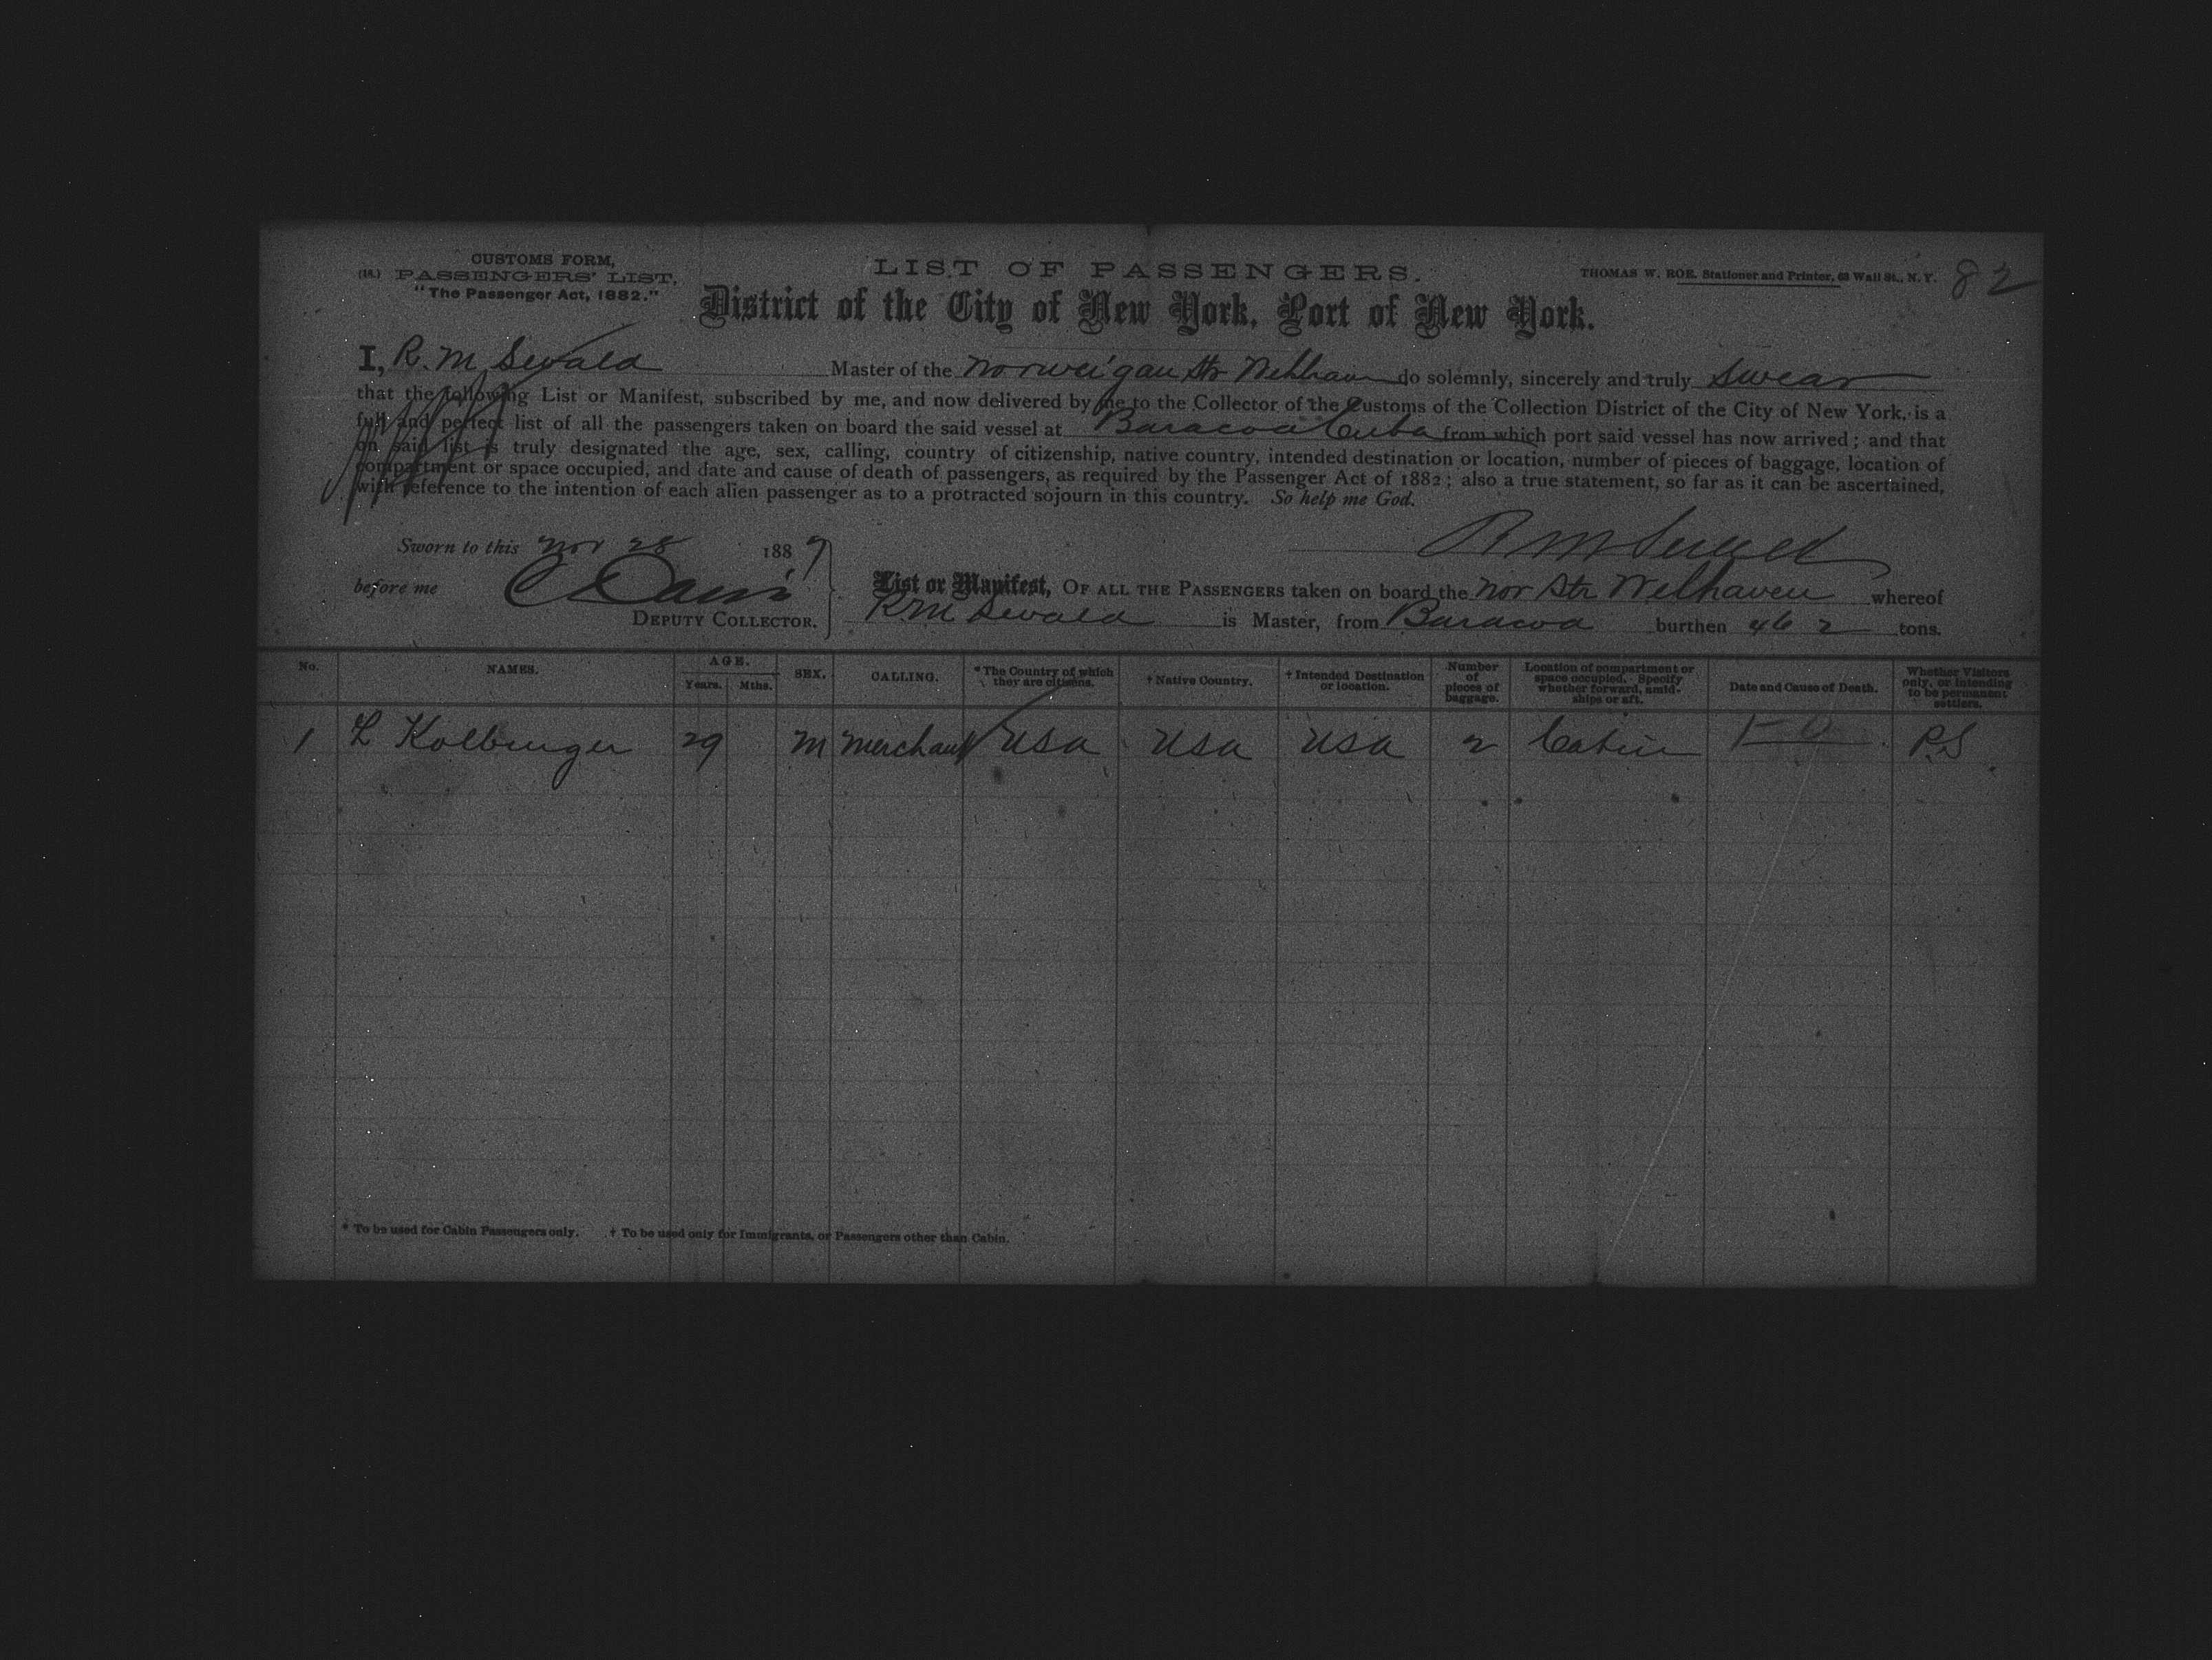 CUSTOMS FORM,
(18.) PASSENGERS' LIST,
"The Passenger Act, 1882."
LIST OF PASSENGERS.
THOMAS W. ROE, Stationer and Printer, 63 Wall St., N.Y.
82
District of the City of New York, Port of New York.
I, R. M. Sewald Master of the Norweigan Str Welhaven do solemnly, sincerely and truly Swear
that the following List or Manifest, subscribed by me, and now delivered by me to the Collector of the Customs of the Collection District of the City of New York, is a
full and perfect list of all the passengers taken on board the said vessel at Baracoa Cuba from which port said vessel has now arrived; and that
on said list is truly designated the age, sex, calling, country of citizenship, native country, intended destination or location, number of pieces of baggage, location of
compartment or space occupied, and date and cause of death of passengers, as required by the Passenger Act of 1882; also a true statement, so far as it can be ascertained,
with reference to the intention of each alien passenger as to a protracted sojourn in this country. So help me God.
Sworn to this Nov 28 1887
R M Sewald
before me C Davis
DEPUTY COLLECTOR.
List or Manifest, OF ALL THE PASSENGERS taken on board the Nor Str Welhaven whereof
R. M. Sewald is Master, from Baracoa burthen 462 tons.
No. NAMES. AGE. Years. Mths. SEX. CALLING. * The Country of which they are citizens. † Native Country. † Intended Destination or location. Number of pieces of baggage. Location of compartment or space occupied. Specify whether forward, amidships or aft. Date and Cause of Death. Whether Visitors only, or intending to be permanent settlers.
1 L Kolbinger 29 M Merchant USA USA USA 2 Cabin P.S
* To be used for Cabin Passengers only. † To be used only for Immigrants, or Passengers other than Cabin.